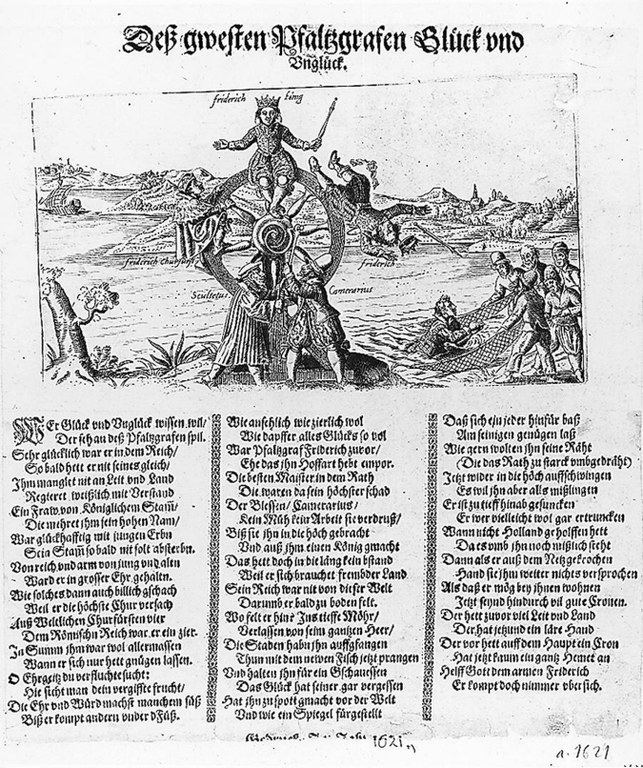 Deß gwesten Pfaltzgrafen Glück vnd
Vnglück.
friderich king
friderich Churfurst
friderich
Scultetus
Camerarius
WEr Glück vnd Vnglück wissen will/
Der seh an deß Pfaltzgrafen spil.
Sehr glücklich war er in dem Reich/
So bald hett er nit seines gleich/
Ihm manglet nit an Leit vnd Land
Regieret weißlich mit Verstand
Ein Fraw von Königlichem Stam̄/
Die mehret ihm sein hohen Nam/
War glückhafftig mit jungen Erbn
Sein Stam̄ so bald nit solt absterbn.
Von reich vnd arm von jung vnd alten
Ward er in grosser Ehr gehalten.
Wie solches dann auch billich gschach
Weil er die höchste Chur versach
Auß Weltlichen Churfürsten vier
Dem Römischn Reich war er ein zier.
In Sum̄a ihm war wol allermassen
Wann er sich nur hett gnügen lassen.
O Ehrgeitz du verfluchte sucht:
Hie sicht man dein vergiffte frucht/
Die Ehr vnd Würd machst manchem süß
Biß er kompt andern vnder d'Füß.
Wie ansehlich wie zierlich wol
Wie dapffer alles Glücks so vol
War Pfaltzgraf Friderich zuvor/
Ehe das ihn Hoffart hebt empor.
Die besten Maister in dem Rath
Die waren da sein höchster schad
Der Blessen/ Camerarius/
Kein Müh kein Arbeit sie verdruß/
Biß sie ihn in die höch gebracht
Vnd auß ihm einen König gmacht
Das hett doch in die läng kein bstand
Weil er sich brauchet frembder Land.
Sein Reich war nit von diser Welt
Darumb er bald zu boden felt.
Wo felt er hin? Ins tieffe Möhr/
Verlassen von seim gantzen Heer/
Die Staden habn ihn auffgfangen
Thun mit dem newen Fisch jetzt prangen
Vnd halten ihn für ein Gschauessen
Das Glück hat seiner gar vergessen
Hat ihn zu spott gmacht vor der Welt
Vnd wie ein Spiegel fürgestellt
Daß sich ein jeder hinfür baß
Am seinigen genügen laß
Wie gern wolten ihn seine Räht
(Die das Rath zu starck vmbgedräht)
Jetzt wider in die höch auffschwingen
Es wil ihn aber alls mißlingen
Er ist zu tieff hinab gesuncken
Er wer villeicht wol gar ertruncken
Wann nicht Holland geholffen hett
Da es vmb ihn noch mißlich steht
Dann als er auß dem Netz gekrochen
Hand sie ihm weiter nichts versprochen
Als daß er mög bey ihnen wohnen
Jetzt seynd hindurch vil gute Cronen.
Der hett zuvor viel Leit vnd Land
Der hat jetzund ein läre Hand
Der vor hett auff dem Haupt ein Cron
Hat jetzt kaum ein gantz Hemet an
Helff Gott dem armen Friderich
Er kompt doch nimmer vber sich.
1621
a. 1621